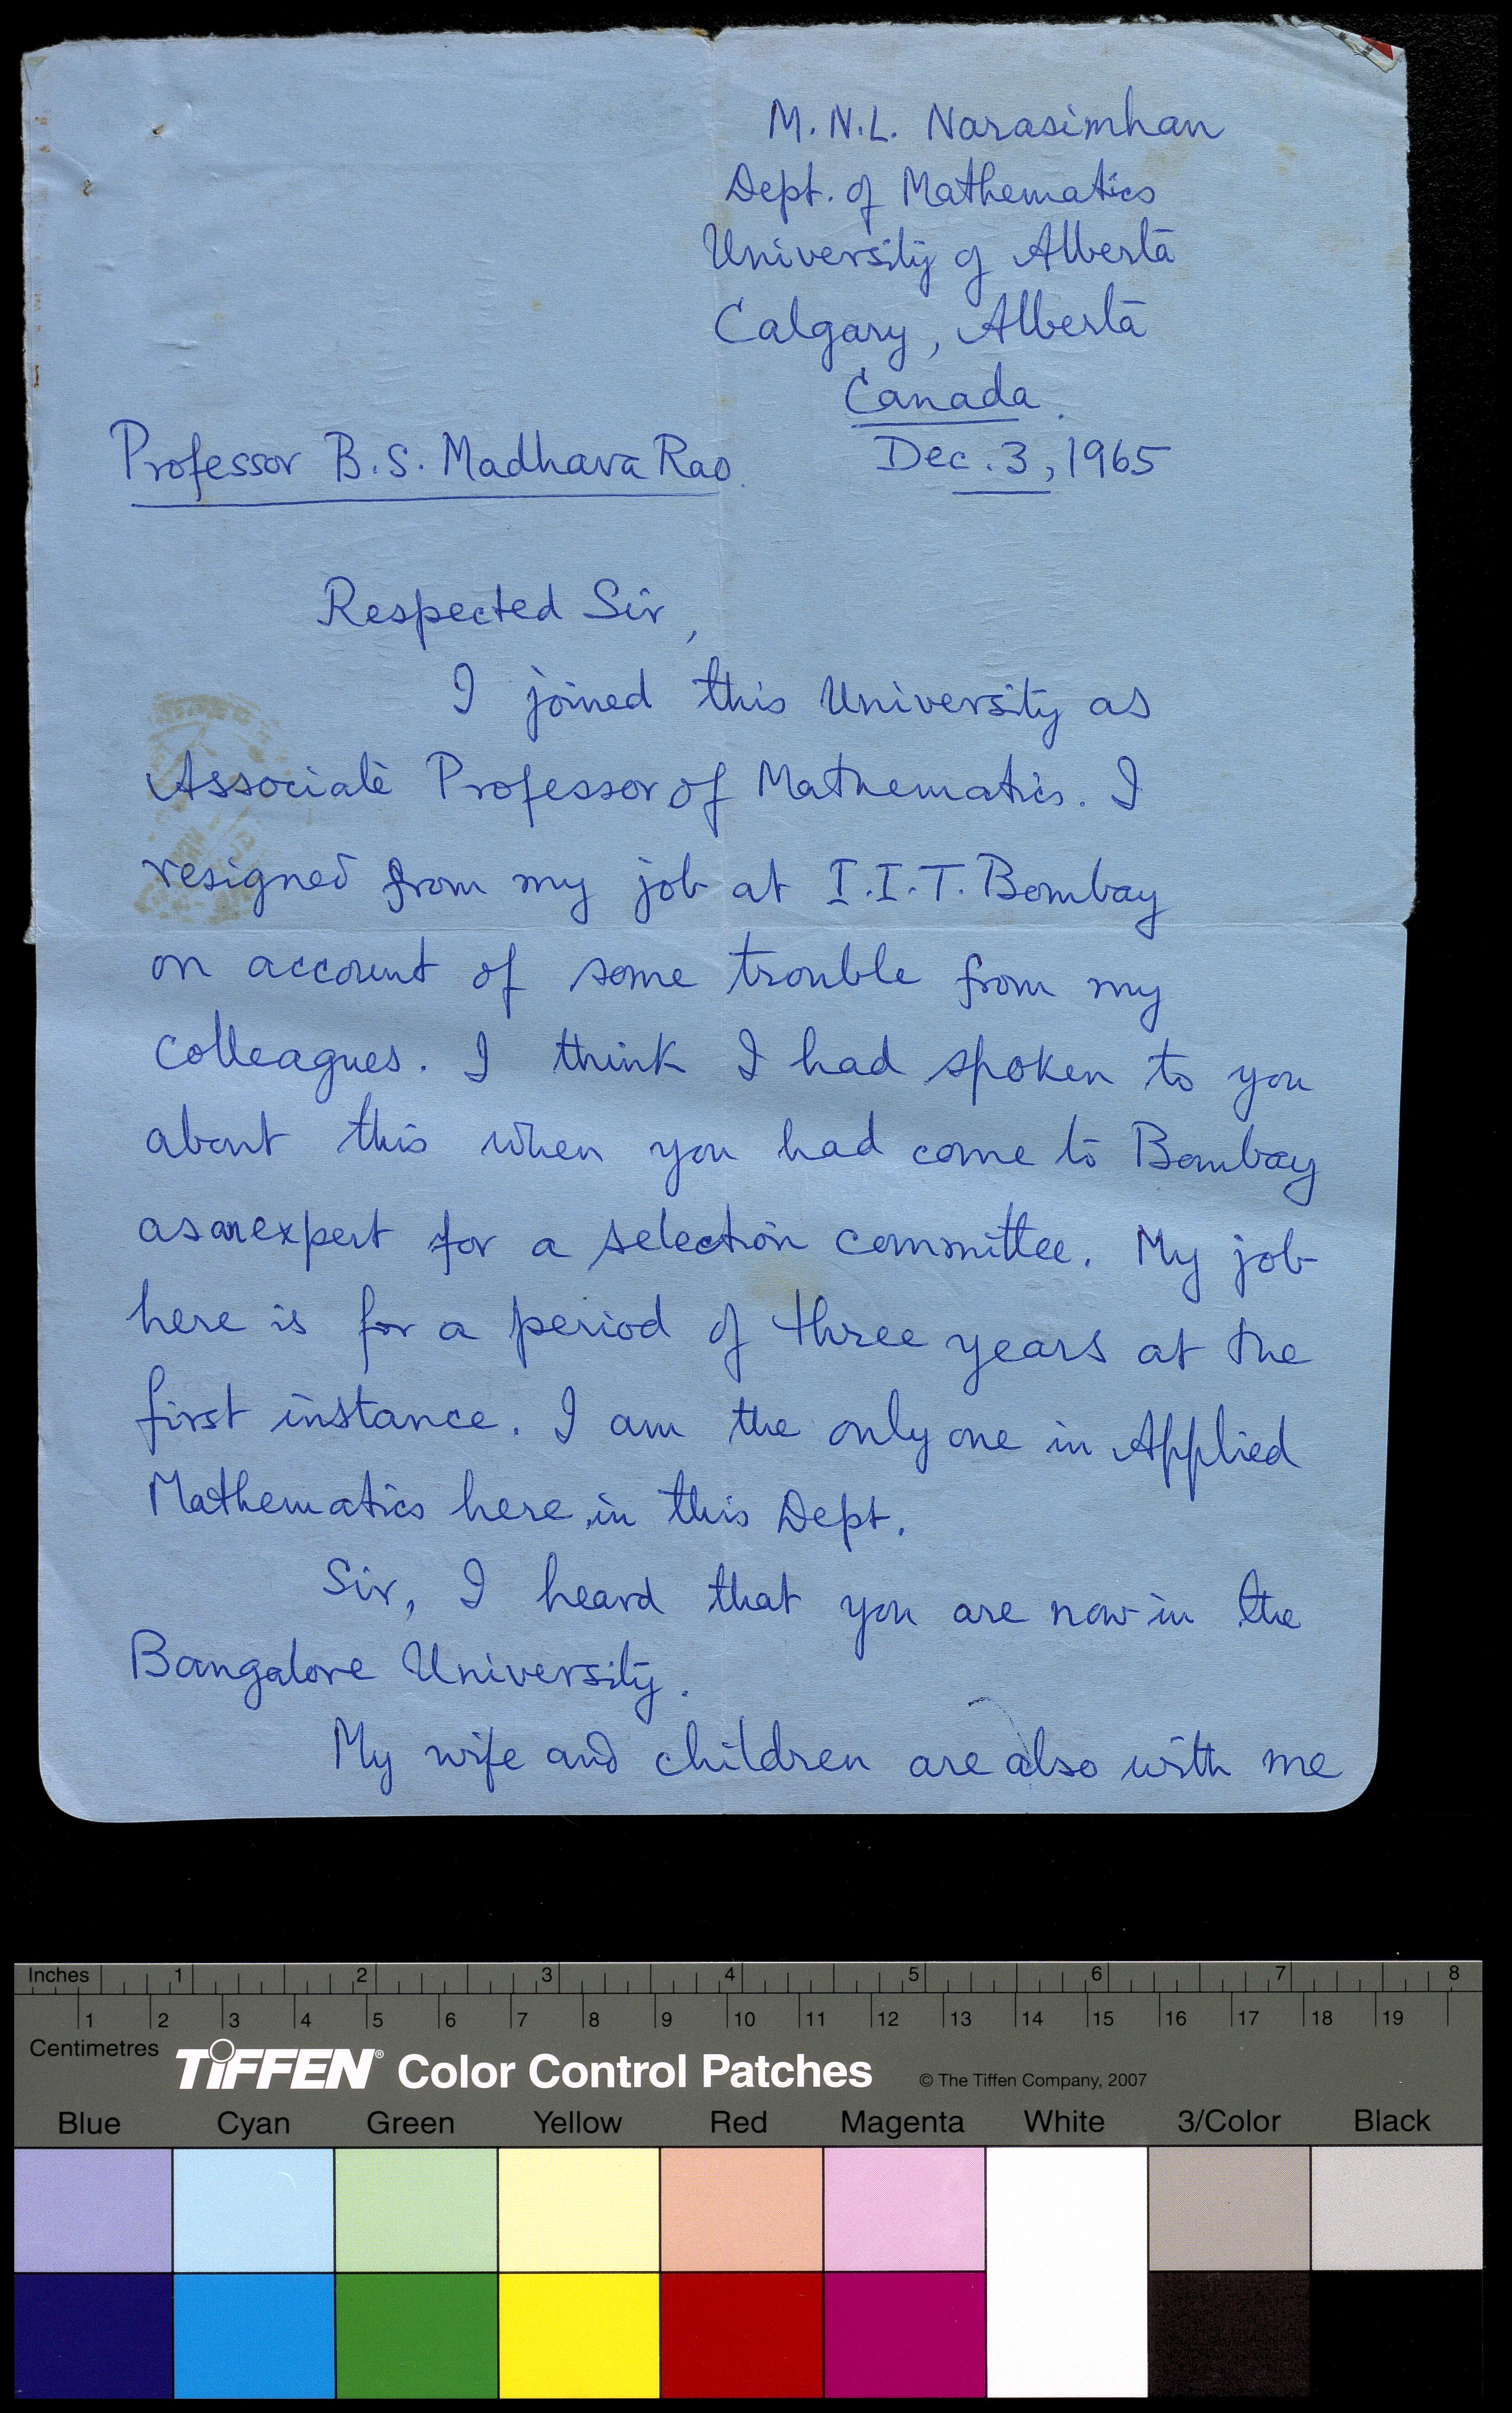 M. N. L. Narasimhan
Dept. of Mathematics
University of Alberta
Calgary, Alberta
Canada.
Professor B. S. Madhava Rao.
Dec. 3, 1965
Respected Sir,
I joined this University as
Associate Professor of Mathematics. I
resigned from my job at I.I.T. Bombay
on account of some trouble from my
colleagues. I think I had spoken to you
about this when you had come to Bombay
as an expert for a selection committee. My job
here is for a period of three years at the
first instance. I am the only one in Applied
Mathematics here in this Dept.
Sir, I heard that you are now in the
Bangalore University.
My wife and children are also with me
Inches 1 2 3 4 5 6 7 8
1 2 3 4 5 6 7 8 9 10 11 12 13 14 15 16 17 18 19
Centimetres
TIFFEN® Color Control Patches © The Tiffen Company, 2007
Blue Cyan Green Yellow Red Magenta White 3/Color Black